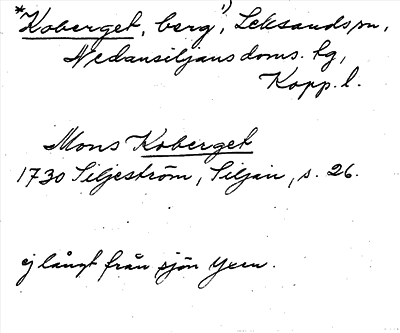 *Koberget, berg¹), Leksands sn,
Nedansiljans doms. tg,
Kopp. l.
Mons Koberget
1730 Siljeström, Siljan, s. 26.
ej långt från sjön Yxen.